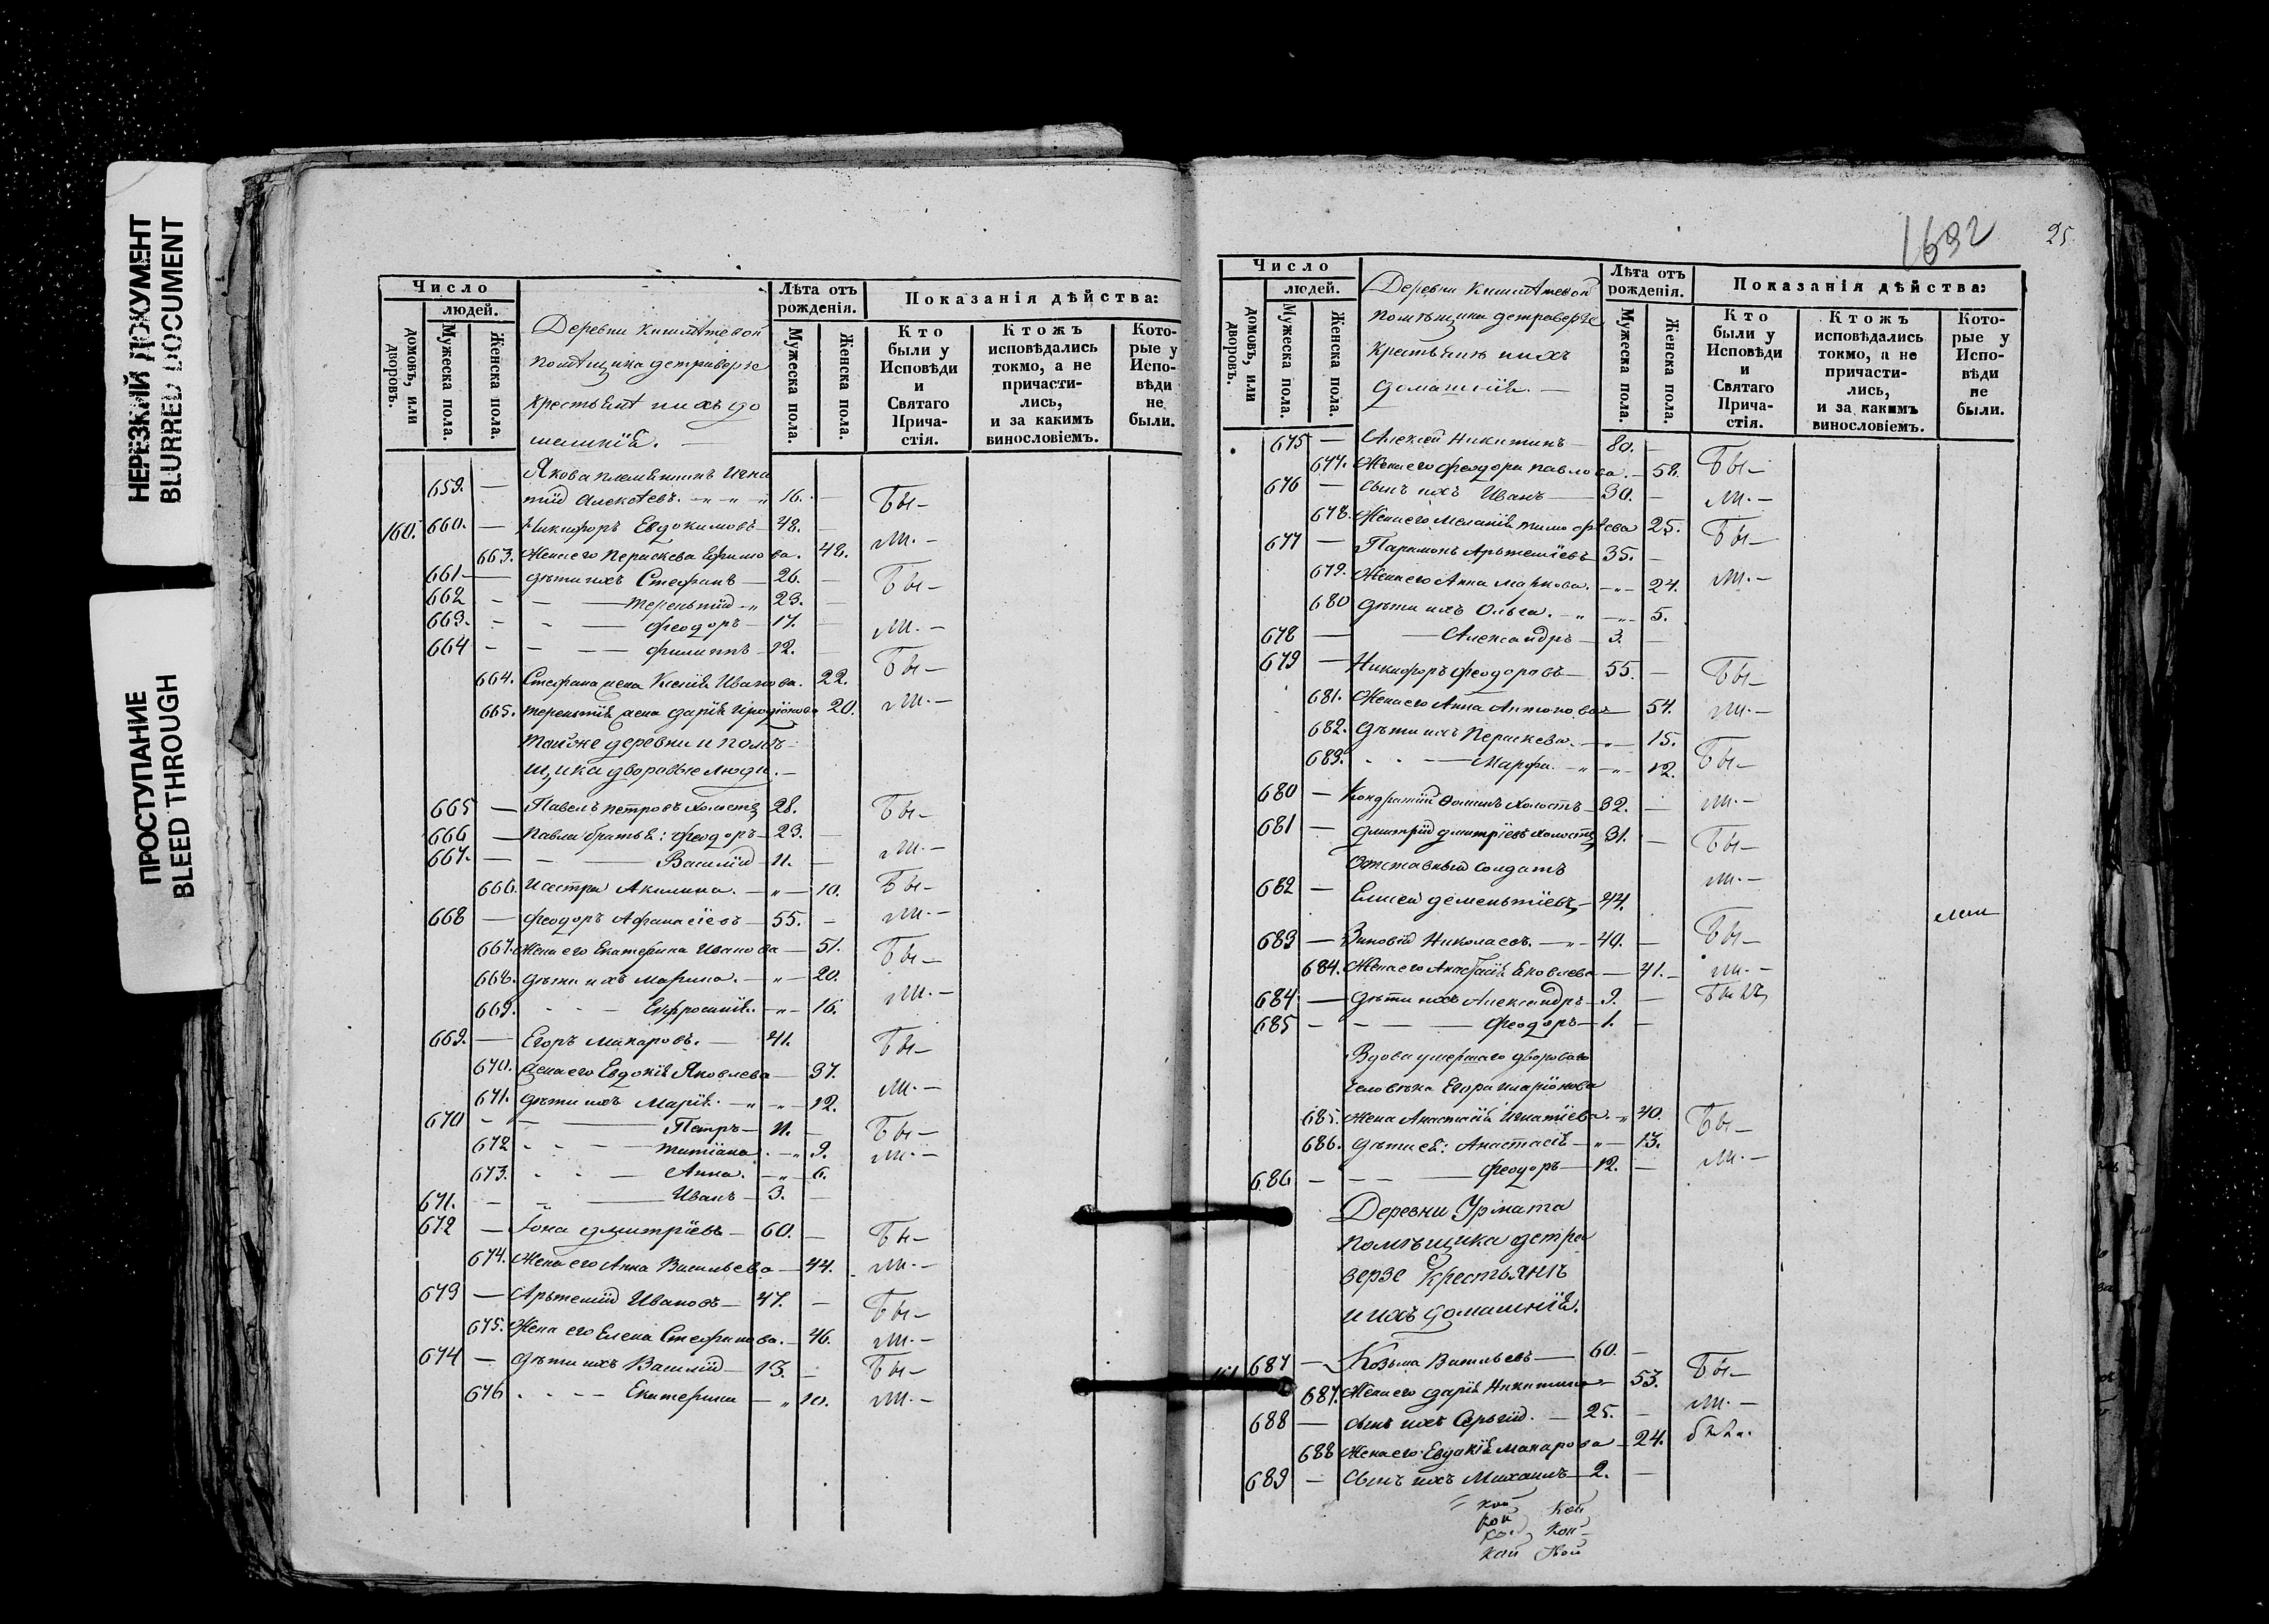 НЕРЕЗКИЙ ДОКУМЕНТ
BLURRED DOCUMENT
ПРОСТУПАНИЕ
BLEED THROUGH
Число
людей.
домовъ, или дворовъ.
Мужеска пола.
Женска пола.
Деревни
помѣщика детраверзе
крестьянѣ и ихъ до
машнія. —
Лѣта отъ рожденія.
Мужеска пола.
Женска пола.
Показанія дѣйства:
Кто были у Исповѣди и Святаго Прича- стія.
Ктожъ исповѣдались токмо, а не причасти- лись, и за какимъ винословіемъ.
Кото- рые у Испо- вѣди не были.
659. — Якова племянникъ Игна
тій Алексѣевъ. 16. — Бы—
160. 660. — Никифоръ Евдокимовъ 48. — ли. —
663. Жена его Параскева Ефимова. 48.
661 — дѣти ихъ Стефанъ — 26. — Бы—
662 — Терентій 23. —
663. — Феодоръ 17. — ли. —
664 — Филиппъ 12. — Бы—
664. Стефана жена Ксенія Иванова. 22.
665. Терентія жена Дарія Иродіонова 20. ли. —
Той же деревни и помѣ-
щика дворовые люди. —
665 — Павелъ Петровъ холостъ 28. Бы—
666 — Павла братья: Феодоръ 23. —
667. — Василій 11. — ли. —
666. и сестра Акилина. 10. Бы—
668 — Феодоръ Афанасіевъ 55. — ли. —
667. Жена его Екатерина Иванова — 51. Бы—
668. дѣти ихъ Марина. 20.
669. Евфросинія. 16. ли. —
669. — Егоръ Макаровъ. — 41. Бы—
670. жена его Евдокія Яковлева — 37.
671. дѣти ихъ Марія. 12. ли. —
670 — Петръ 11. — Бы—
672 — Татіана. 9. ли. —
673. — Анна. 6.
671. — Иванъ 3. —
672 — Іона Дмитріевъ — 60. — Бы—
674. Жена его Анна Васильева — 44. ли. —
673 — Артемій Ивановъ — 47. — Бы—
675. Жена его Елена Стефанова. 46. ли. —
674 — дѣти ихъ Василій 13. — Бы—
676 — Екатерина 10. ли. —
1632
25
Число
людей.
домовъ, или дворовъ.
Мужеска пола.
Женска пола.
Деревни
помѣщика детраверзе
крестьянѣ и ихъ
домашнія. —
Лѣта отъ рожденія.
Мужеска пола.
Женска пола.
Показанія дѣйства:
Кто были у Исповѣди и Святаго Прича- стія.
Ктожъ исповѣдались токмо, а не причасти- лись, и за какимъ винословіемъ.
Кото- рые у Испо- вѣди не были.
675 — Алексѣй Никитинъ 80. —
677. Жена его Феодора Павлова. 58. Бы—
676 — сынъ ихъ Иванъ 30. — ли. —
678. Жена его Меланія Тимофѣева 25. Бы—
677 — Парамонъ Артеміевъ 35. —
679. Жена его Анна Маркова. 24. ли. —
680 дѣти ихъ Ольга. 5.
678 — Александръ 3. —
679 — Никифоръ Феодоровъ 55. — Бы—
681. Жена его Анна Антонова 54. ли. —
682. дѣти ихъ Параскева. 15.
683. — Марфа. 12. Бы—
680 — Кондратій Фоминъ холостъ 32. — ли. —
681 — Дмитрій Дмитріевъ холостъ 31. — Бы—
Отставный солдатъ
682 — Елисей Дементіевъ 44. ли. —
683 — Зиновій Николаевъ. 40. — Бы—
684. Жена его Анастасія Яковлева — 41. ли. —
684 — дѣти ихъ Александръ 9. — Былъ
685 — Феодоръ 1. —
Вдова умершаго двороваго
человѣка Егора Иларіонова
685. жена Анастасія Игнатіева. 40. Бы—
686. дѣти ея: Анастасія 13.
686 — Феодоръ 12. — ли. —
Деревни Урмата
помѣщика детра
верзе крестьянъ
и ихъ домашнія.
161 687 — Козьма Васильевъ — 60. —
687. Жена его Дарія Никитина 53. Бы—
688 — сынъ ихъ Сергій. — 25. — ли. —
688 Жена его Евдокія Макарова 24. была.
689 — Сынъ ихъ Михаилъ 2. —
кой Кой
кой Кой
кой